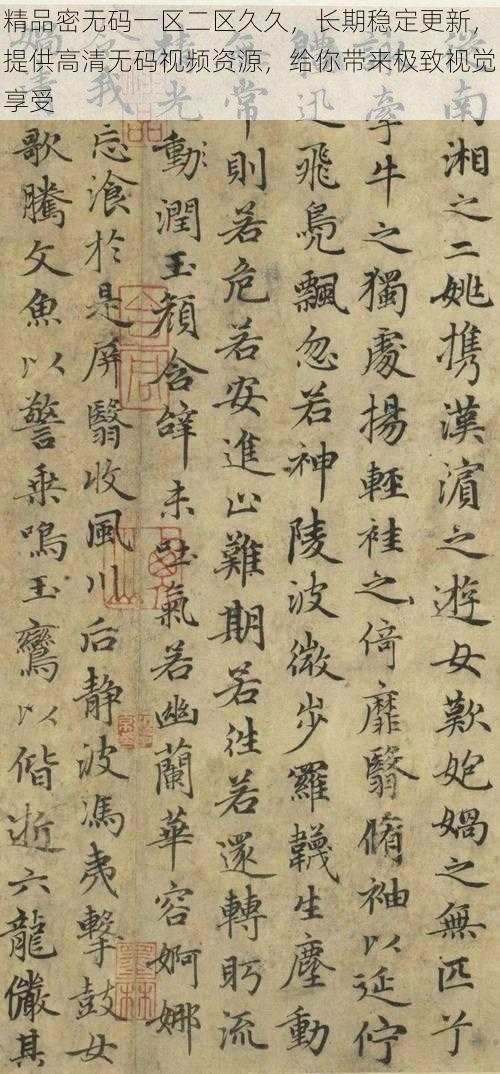 精品密无码一区二区久久，长期稳定更新，
提供高清无码视频资源，给你带来极致视觉
享受
南湘之二姚携漢濱之遊女歎媧之無匹兮
牽牛之獨處揚輕袿之倚靡翳脩袖以延佇
體迅飛鳧飄忽若神陵波微步羅韈生塵動
常則若危若安進止難期若往若還轉眄流
光動潤玉顏含辭未吐氣若幽蘭華容婀娜
我忘湌於是屏翳收風川后静波馮夷擊鼓女
歌騰文魚以警乘鳴玉鸞以偕逝六龍儼其